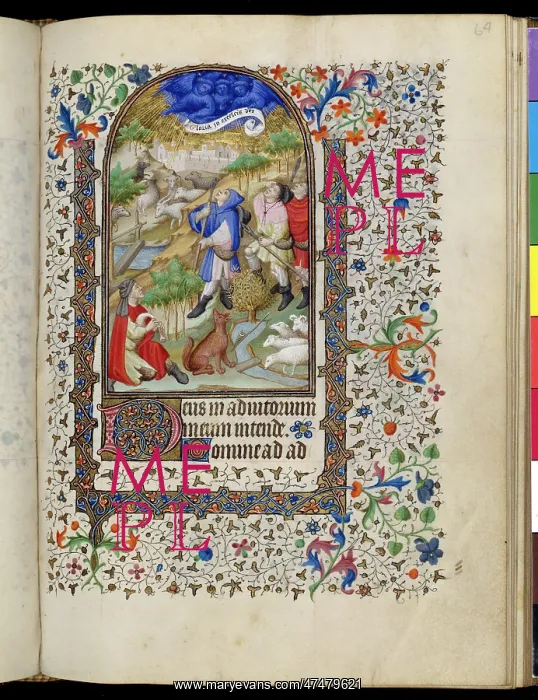 64
Gloria in excelsis deo
Deus in adiutorium
meum intende.
Domine ad ad
ME
PL
ME
PL
www.maryevans.com/47479621